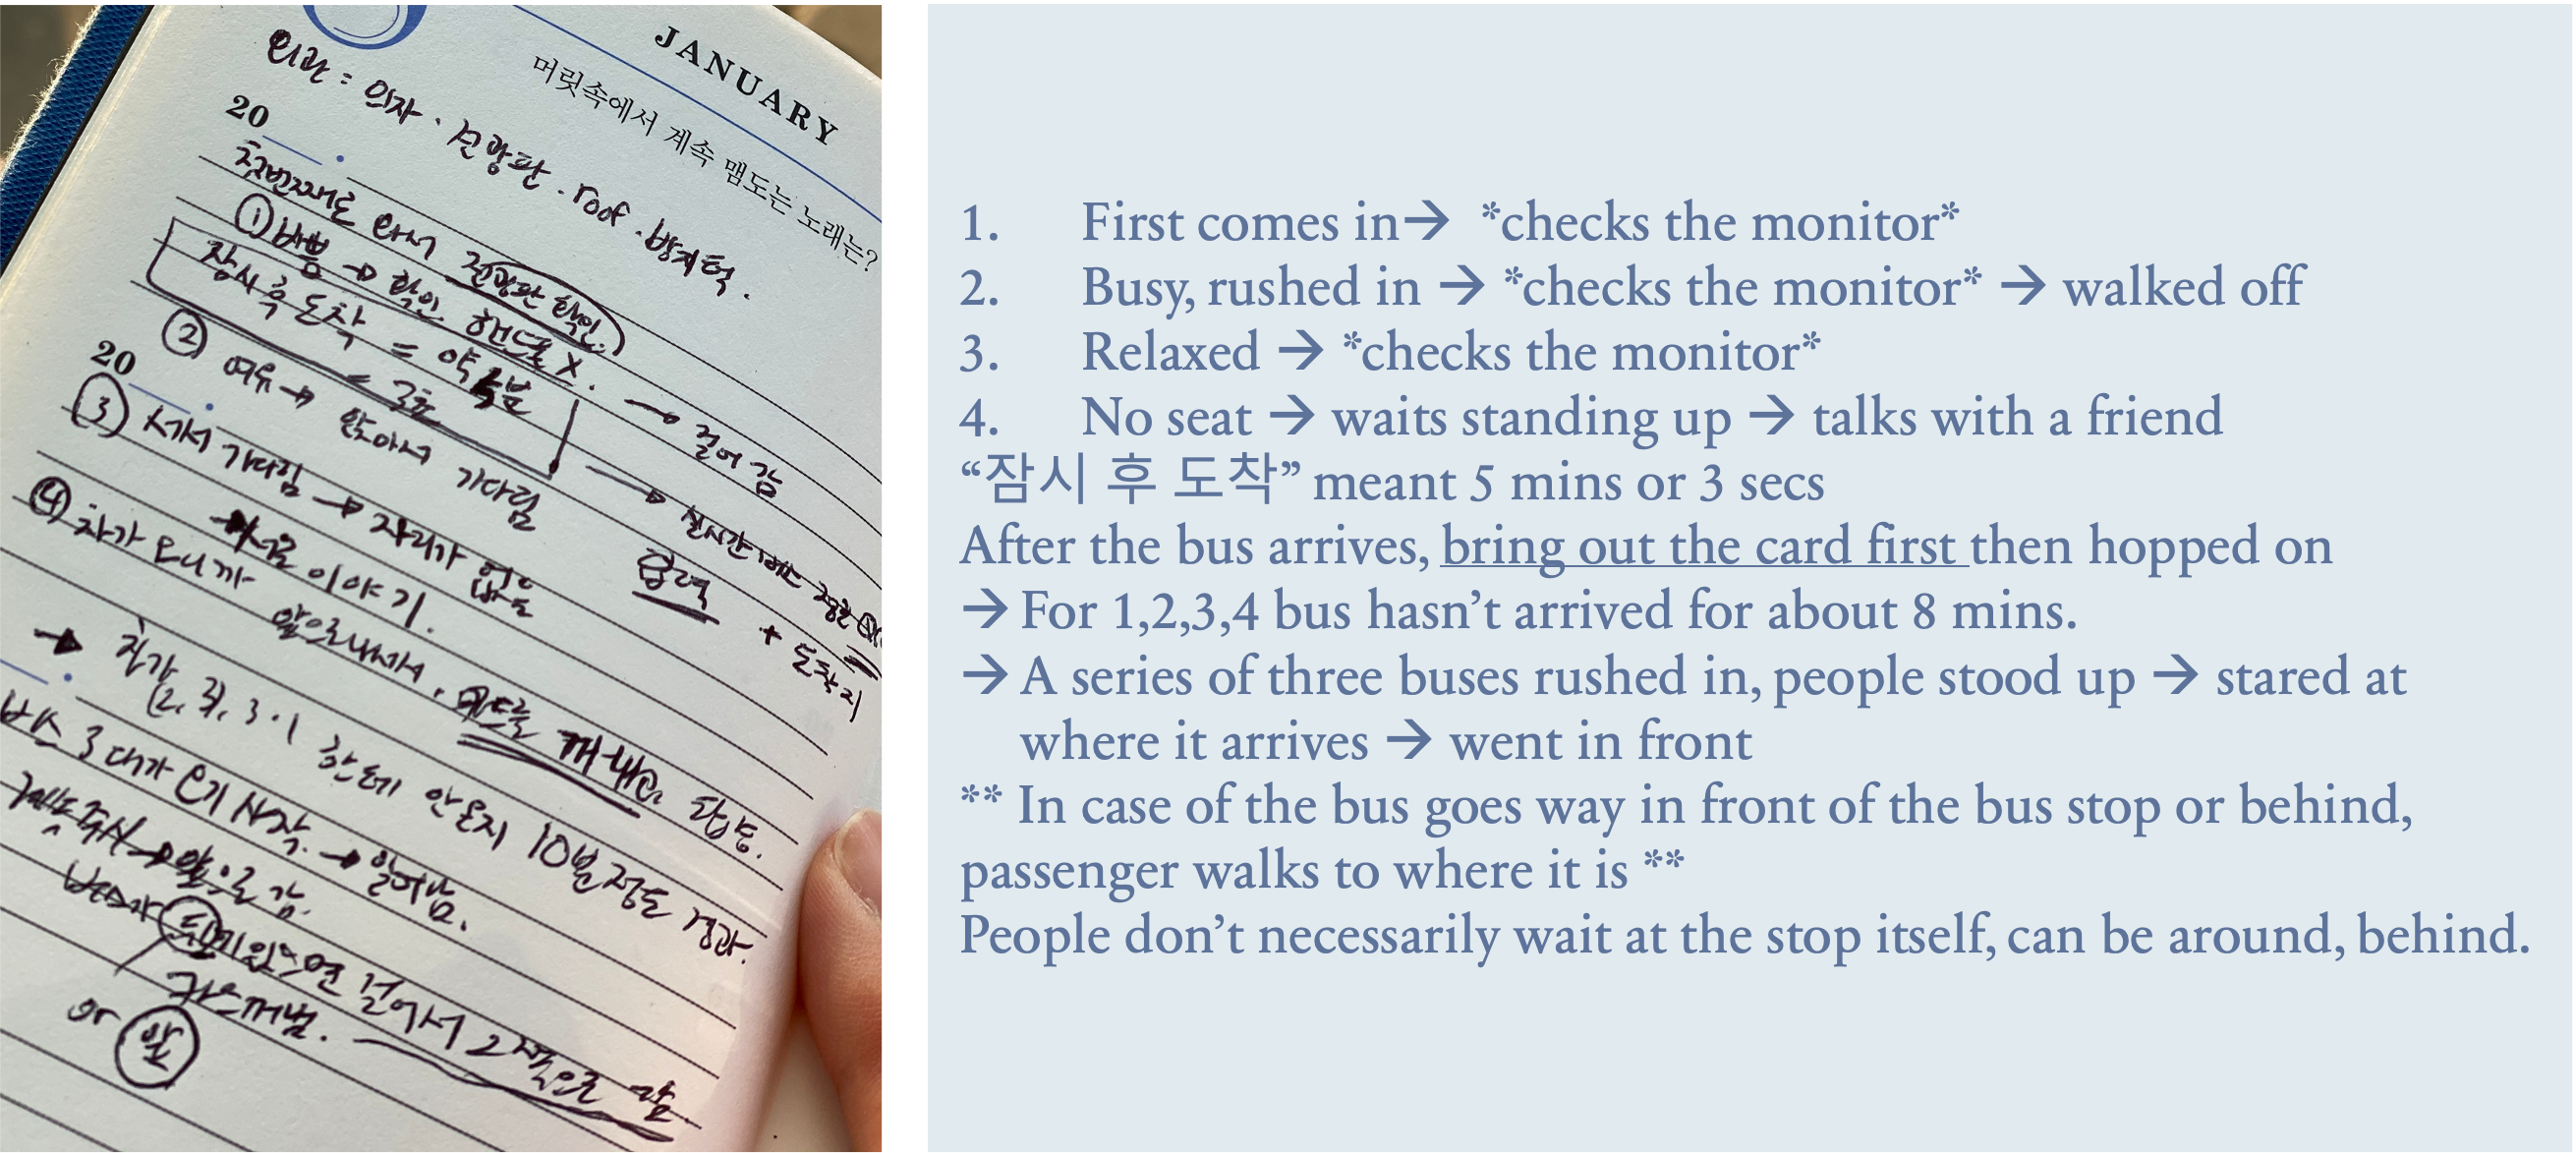 JANUARY
머릿속에서 계속 맴도는 노래는?
외관 : 의자 · 전망판 · roof · 방지턱.
20
첫번째로 와서 전광판 확인.
① 바쁨 → 확인. 핸드폰 X. → 걸어 감
잠시 후 도착 = 약 분
= 3초
② 여유 → 앉아서 기다림
20
③ 서서 기다림 → 자리가 없음
→ 서로 이야기.
④ 차가 오니까 앞으로 나가서, 카드를 꺼내고 탑승.
+ 도착지
→ 한테 안온지 10분정도 경과.
버스 3대가 오기 시작. → 일어남.
계속 주시 → 앞으로 감.
버스가 뒤에 있으면 걸어서 그쪽으로 감
or 앞
1. First comes in→ *checks the monitor*
2. Busy, rushed in → *checks the monitor* → walked off
3. Relaxed → *checks the monitor*
4. No seat → waits standing up → talks with a friend
“잠시 후 도착” meant 5 mins or 3 secs
After the bus arrives, bring out the card first then hopped on
→ For 1,2,3,4 bus hasn’t arrived for about 8 mins.
→ A series of three buses rushed in, people stood up → stared at
where it arrives → went in front
** In case of the bus goes way in front of the bus stop or behind,
passenger walks to where it is **
People don’t necessarily wait at the stop itself, can be around, behind.